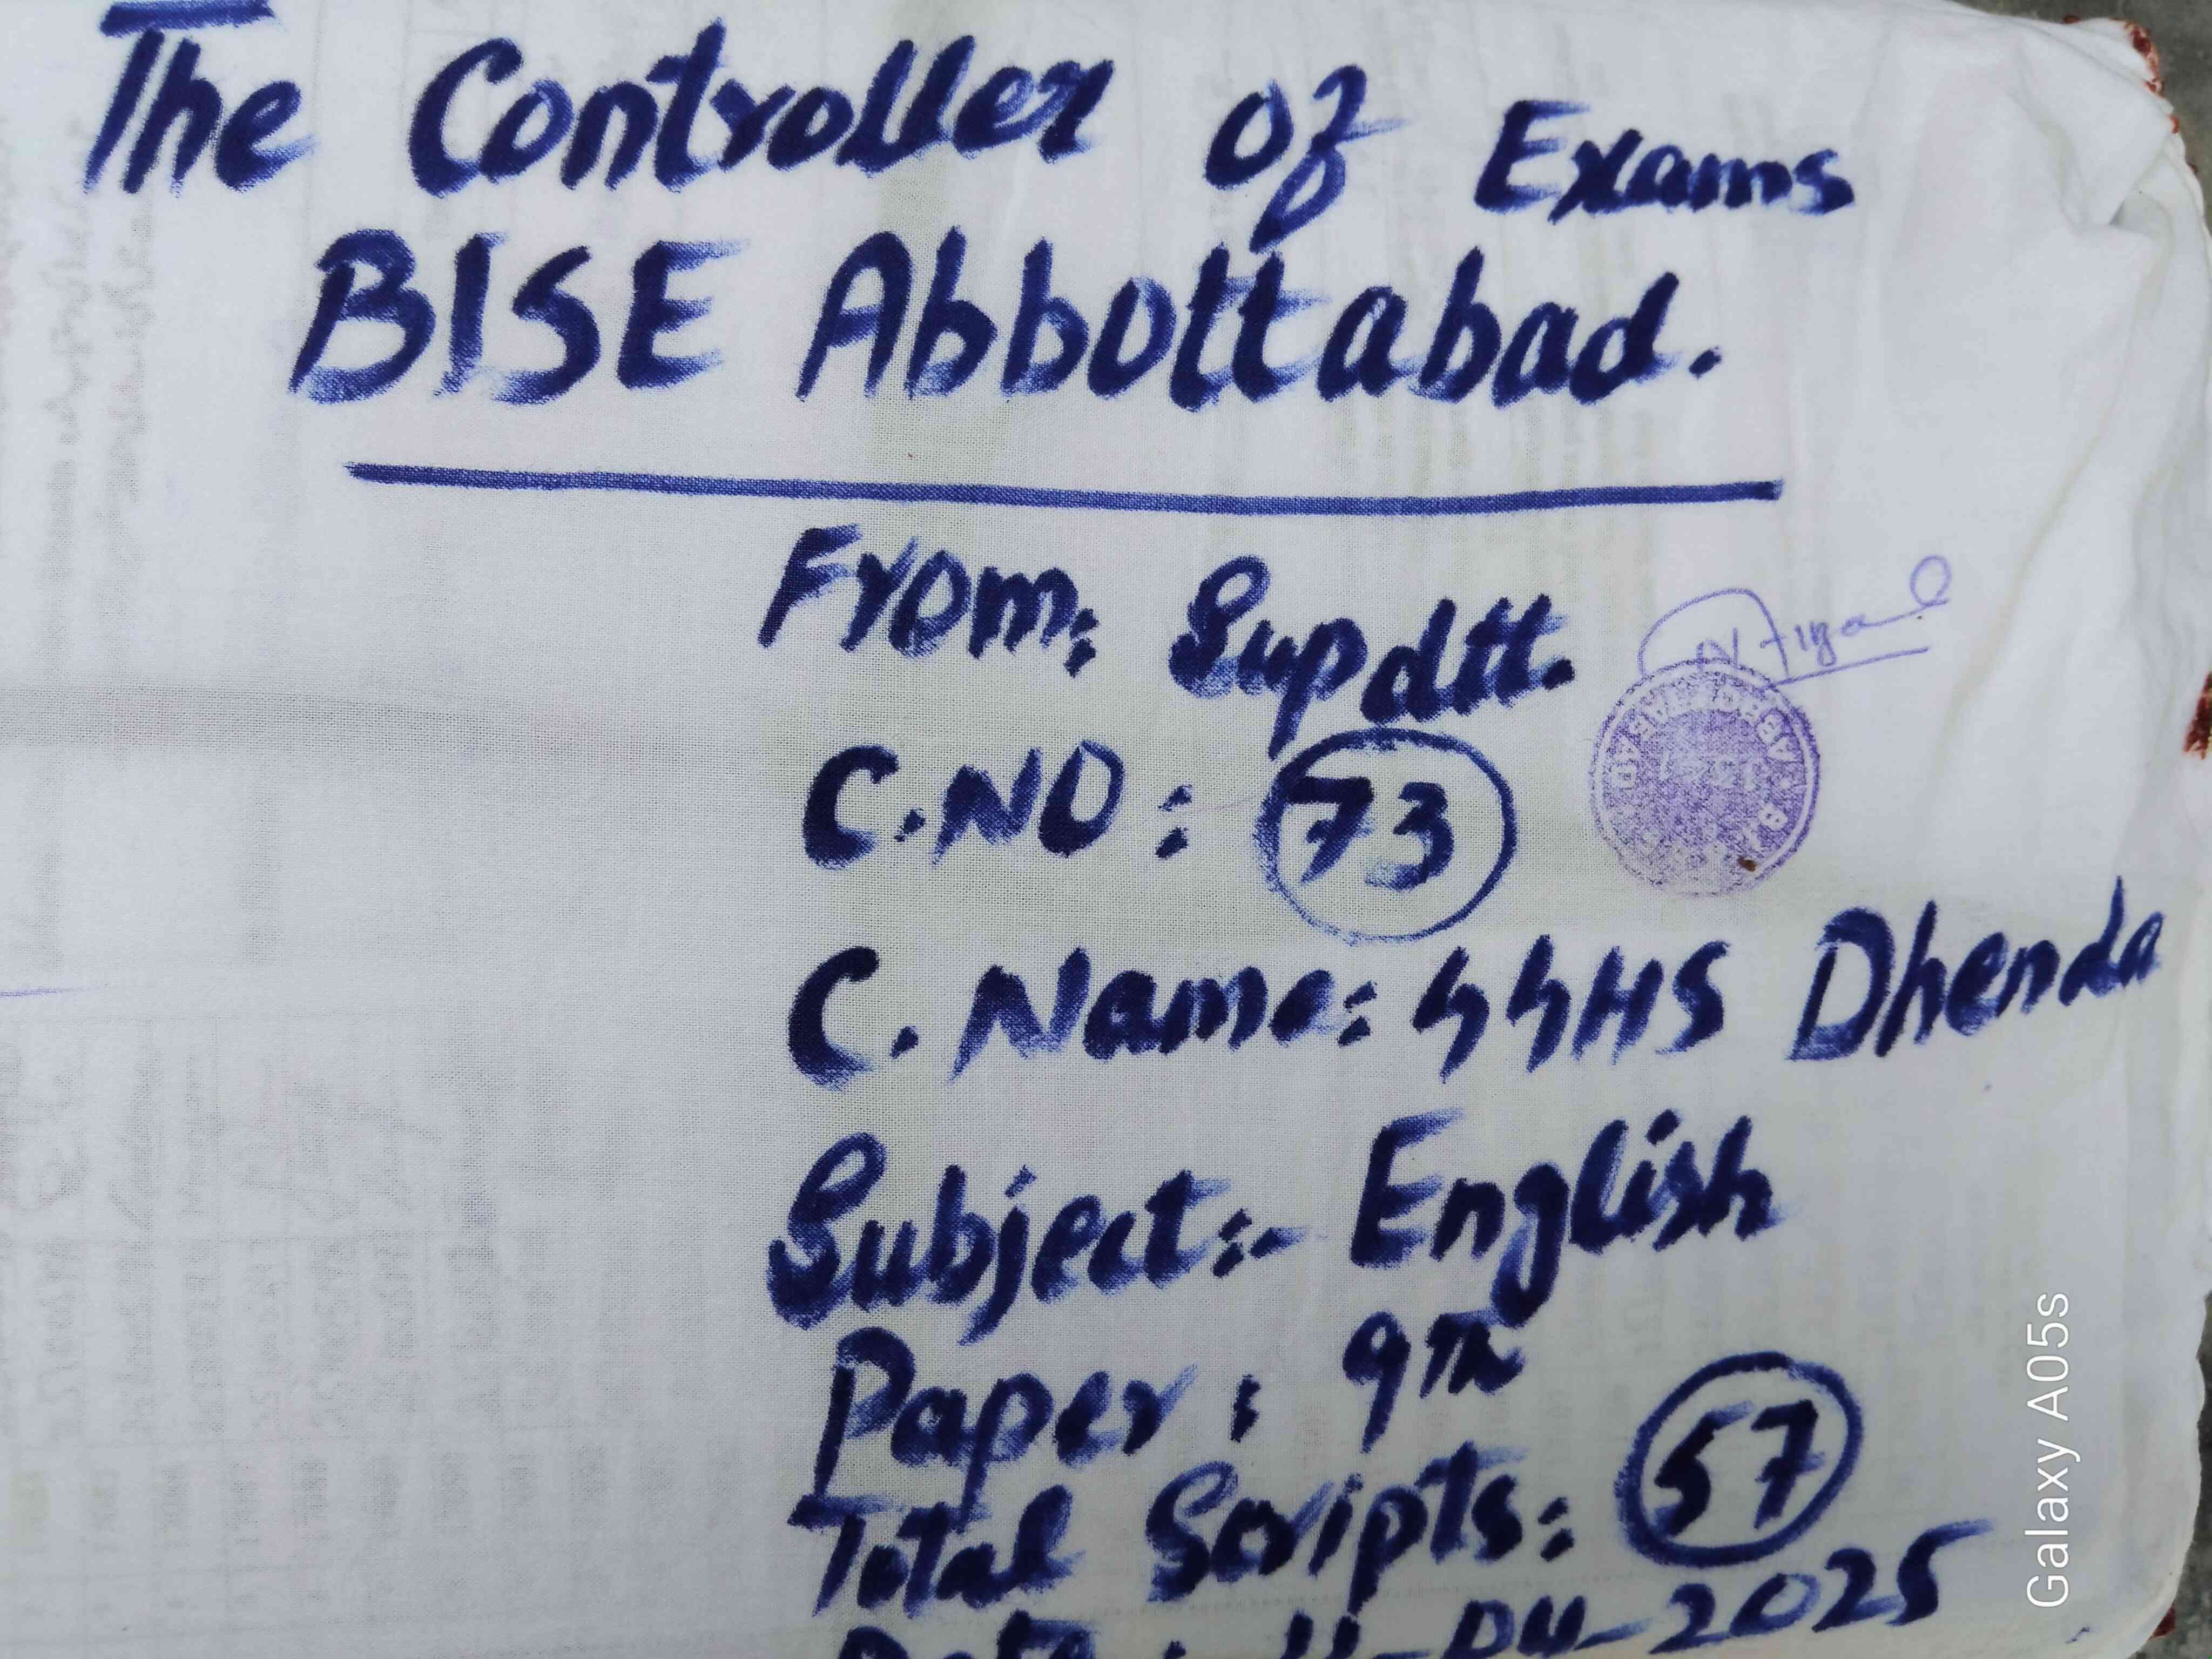 The Controller of Exams
BISE Abbottabad.
From: Supdtt.
C.NO: 73
C. Name: GGHS Dhenda
Subject:- English
Paper: 9th
Total Scripts: 57
Date: 11-04-2025
Galaxy A05s